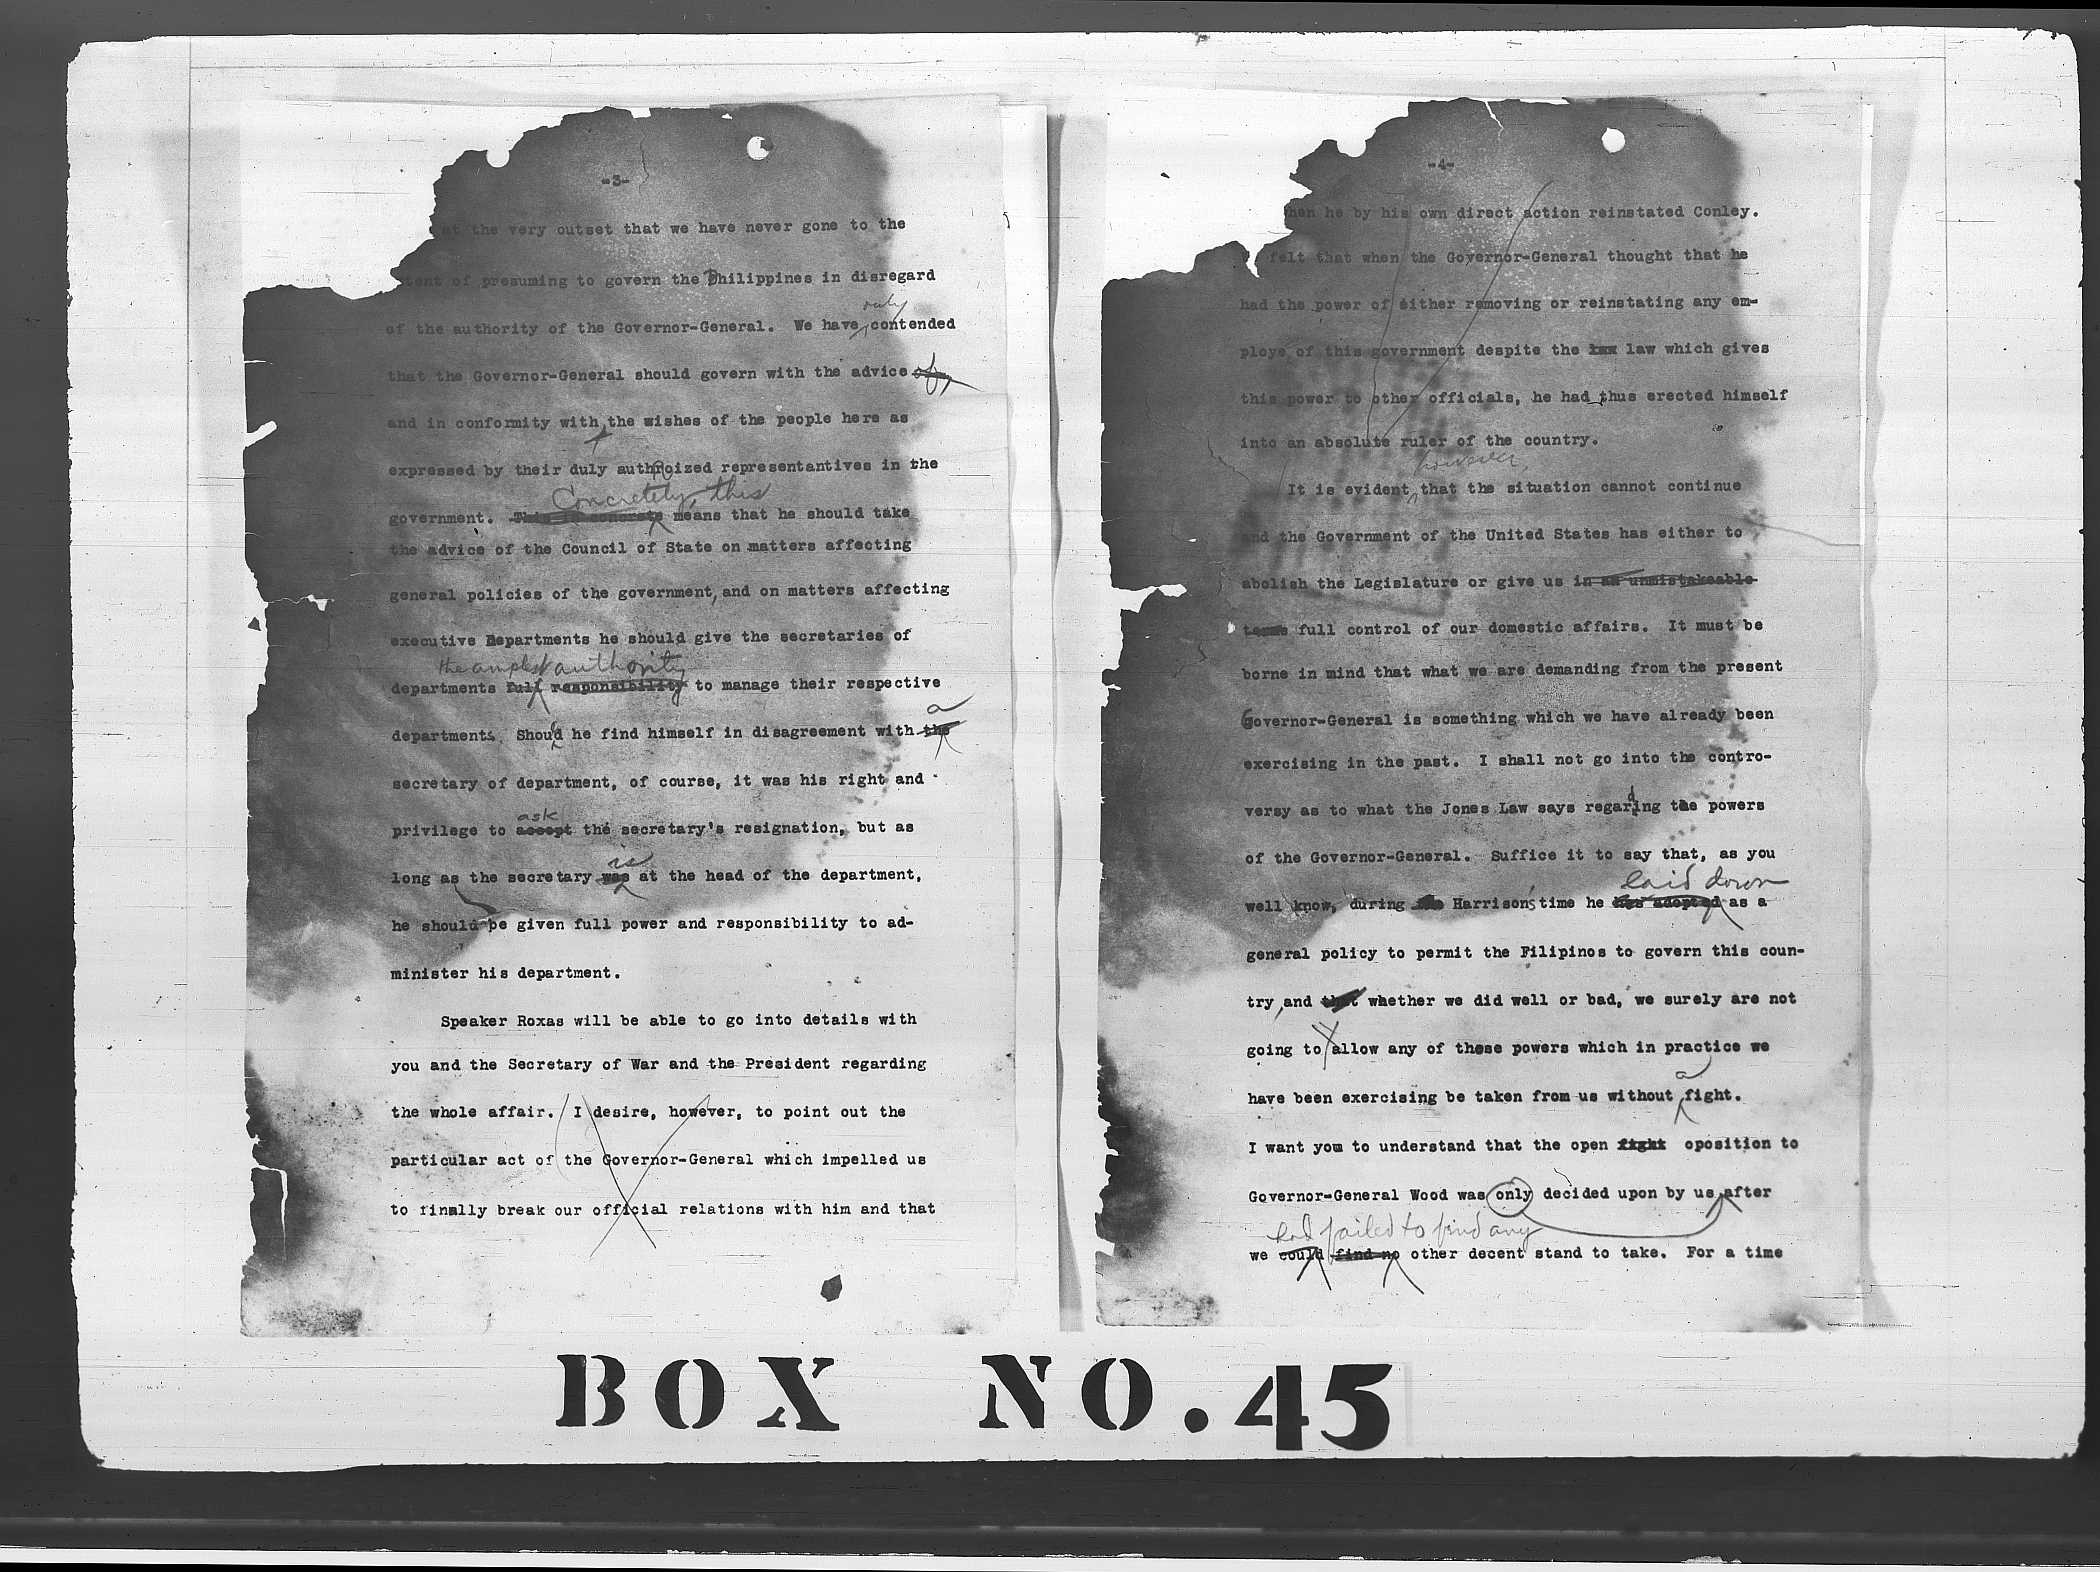 -3-
at the very outset that we have never gone to the
tent of presuming to govern the Philippines in disregard
only
of the authority of the Governor-General. We have contended
that the Governor-General should govern with the advice of,
and in conformity with the wishes of the people here as
expressed by their duly authroized representantives in the
Concretely, this
government. This is concrete means that he should take
the advice of the Council of State on matters affecting
general policies of the government, and on matters affecting
executive Departments he should give the secretaries of
the amplest authority
departments full responsibility to manage their respective
a
departments. Shoud he find himself in disagreement with the
secretary of department, of course, it was his right and
ask
privilege to accept the secretary's resignation, but as
is
long as the secretary was at the head of the department,
he should be given full power and responsibility to ad-
minister his department.
Speaker Roxas will be able to go into details with
you and the Secretary of War and the President regarding
the whole affair. I desire, however, to point out the
particular act of the Governor-General which impelled us
to finally break our official relations with him and that
-4-
hen he by his own direct action reinstated Conley.
felt that when the Governor-General thought that he
had the power of either removing or reinstating any em-
ploye of this government despite the law which gives
this power to other officials, he had thus erected himself
into an absolute ruler of the country.
however,
It is evident that the situation cannot continue
and the Government of the United States has either to
abolish the Legislature or give us in an unmistakeable
terms full control of our domestic affairs. It must be
borne in mind that what we are demanding from the present
Governor-General is something which we have already been
exercising in the past. I shall not go into the contro-
versy as to what the Jones Law says regarding the powers
of the Governor-General. Suffice it to say that, as you
laid down
well know, during Harrison's time he has adopted as a
general policy to permit the Filipinos to govern this coun-
try, and that whether we did well or bad, we surely are not
going to allow any of these powers which in practice we
a
have been exercising be taken from us without fight.
I want you to understand that the open fight oposition to
Governor-General Wood was only decided upon by us after
had failed to find any
we could find no other decent stand to take. For a time
BOX NO. 45